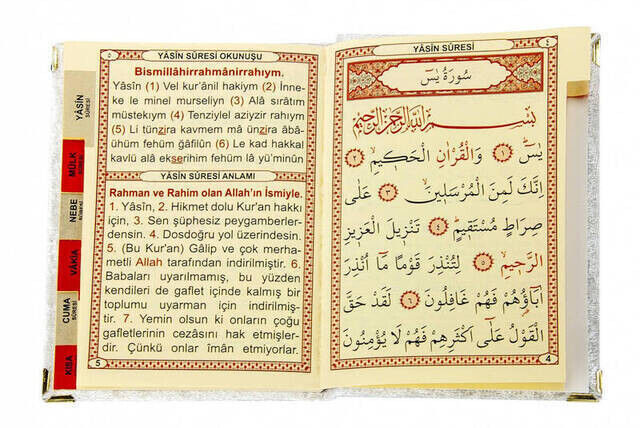 YÂSİN SÛRESİ OKUNUŞU
Bismillâhirrahmânirrahıym.
Yâsîn (1) Vel kur'ânil hakiym (2) İnne-
ke le minel murseliyn (3) Alâ sırâtım
müstekıym (4) Tenziylel aziyzir rahıym
(5) Li tünzira kavmem mâ ünzira âbâ-
ühüm fehüm ğâfilûn (6) Le kad hakkal
kavlü alâ ekserihim fehüm lâ yü'minûn
YÂSİN SÛRESİ ANLAMI
Rahman ve Rahim olan Allah'ın İsmiyle.
1. Yâsîn, 2. Hikmet dolu Kur'an hakkı
için, 3. Sen şüphesiz peygamberler-
densin. 4. Dosdoğru yol üzerindesin.
5. (Bu Kur'an) Gâlip ve çok merha-
metli Allah tarafından indirilmiştir. 6.
Babaları uyarılmamış, bu yüzden
kendileri de gaflet içinde kalmış bir
toplumu uyarman için indirilmiş-
tir. 7. Yemin olsun ki onların çoğu
gafletlerinin cezasını hak etmişler-
dir. Çünkü onlar îmân etmiyorlar.
5
YÂSİN
SÛRESİ
MÜLK
SÛRESİ
NEBE
SÛRESİ
VÂKIA
CUMA
SÛRESİ
KISA
YÂSİN SÛRESİ
٤
سُورَةُ يٰسٓ
بِسْــمِ اللّٰهِ الرَّحْمٰنِ الرَّح۪يمِ
يٰسٓۜ ﴿١﴾ وَالْقُرْاٰنِ الْحَك۪يمِۙ ﴿٢﴾
اِنَّكَ لَمِنَ الْمُرْسَل۪ينَۙ ﴿٣﴾ عَلٰى
صِرَاطٍ مُسْتَق۪يمٍۜ ﴿٤﴾ تَنْز۪يلَ الْعَز۪يزِ
الرَّح۪يمِۙ ﴿٥﴾ لِتُنْذِرَ قَوْمًا مَٓا اُنْذِرَ
اٰبَٓاؤُ۬هُمْ فَهُمْ غَافِلُونَ ﴿٦﴾ لَقَدْ حَقَّ
الْقَوْلُ عَلٰٓى اَكْثَرِهِمْ فَهُمْ لَا يُؤْمِنُونَ
4